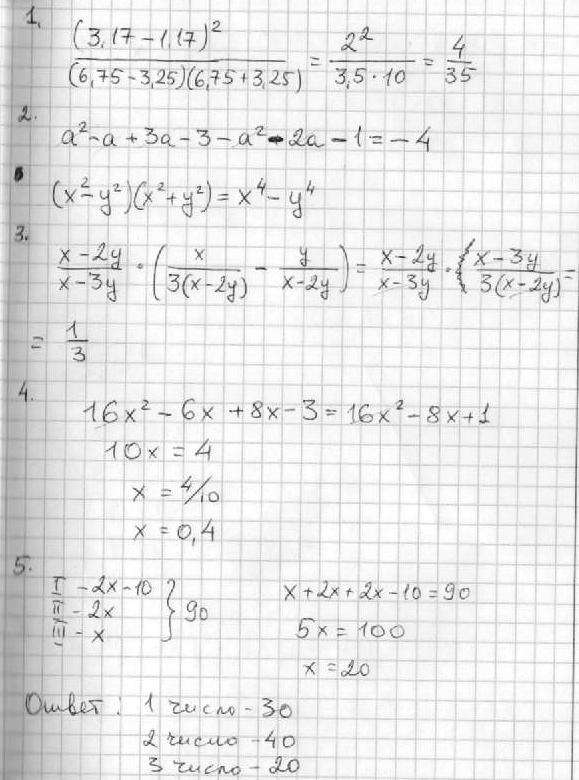 1.
(3,17 - 1,17)² / (6,75 - 3,25)(6,75 + 3,25) = 2² / 3,5 · 10 = 4/35
2.
a² - a + 3a - 3 - a² - 2a - 1 = - 4
(x² - y²)(x² + y²) = x⁴ - y⁴
3.
x - 2y / x - 3y · (x / 3(x - 2y) - y / x - 2y) = x - 2y / x - 3y · x - 3y / 3(x - 2y) =
= 1/3
4.
16x² - 6x + 8x - 3 = 16x² - 8x + 1
10x = 4
x = 4/10
x = 0,4
5.
I - 2x - 10
II - 2x } 90
III - x
x + 2x + 2x - 10 = 90
5x = 100
x = 20
Ответ: 1 число - 30
2 число - 40
3 число - 20